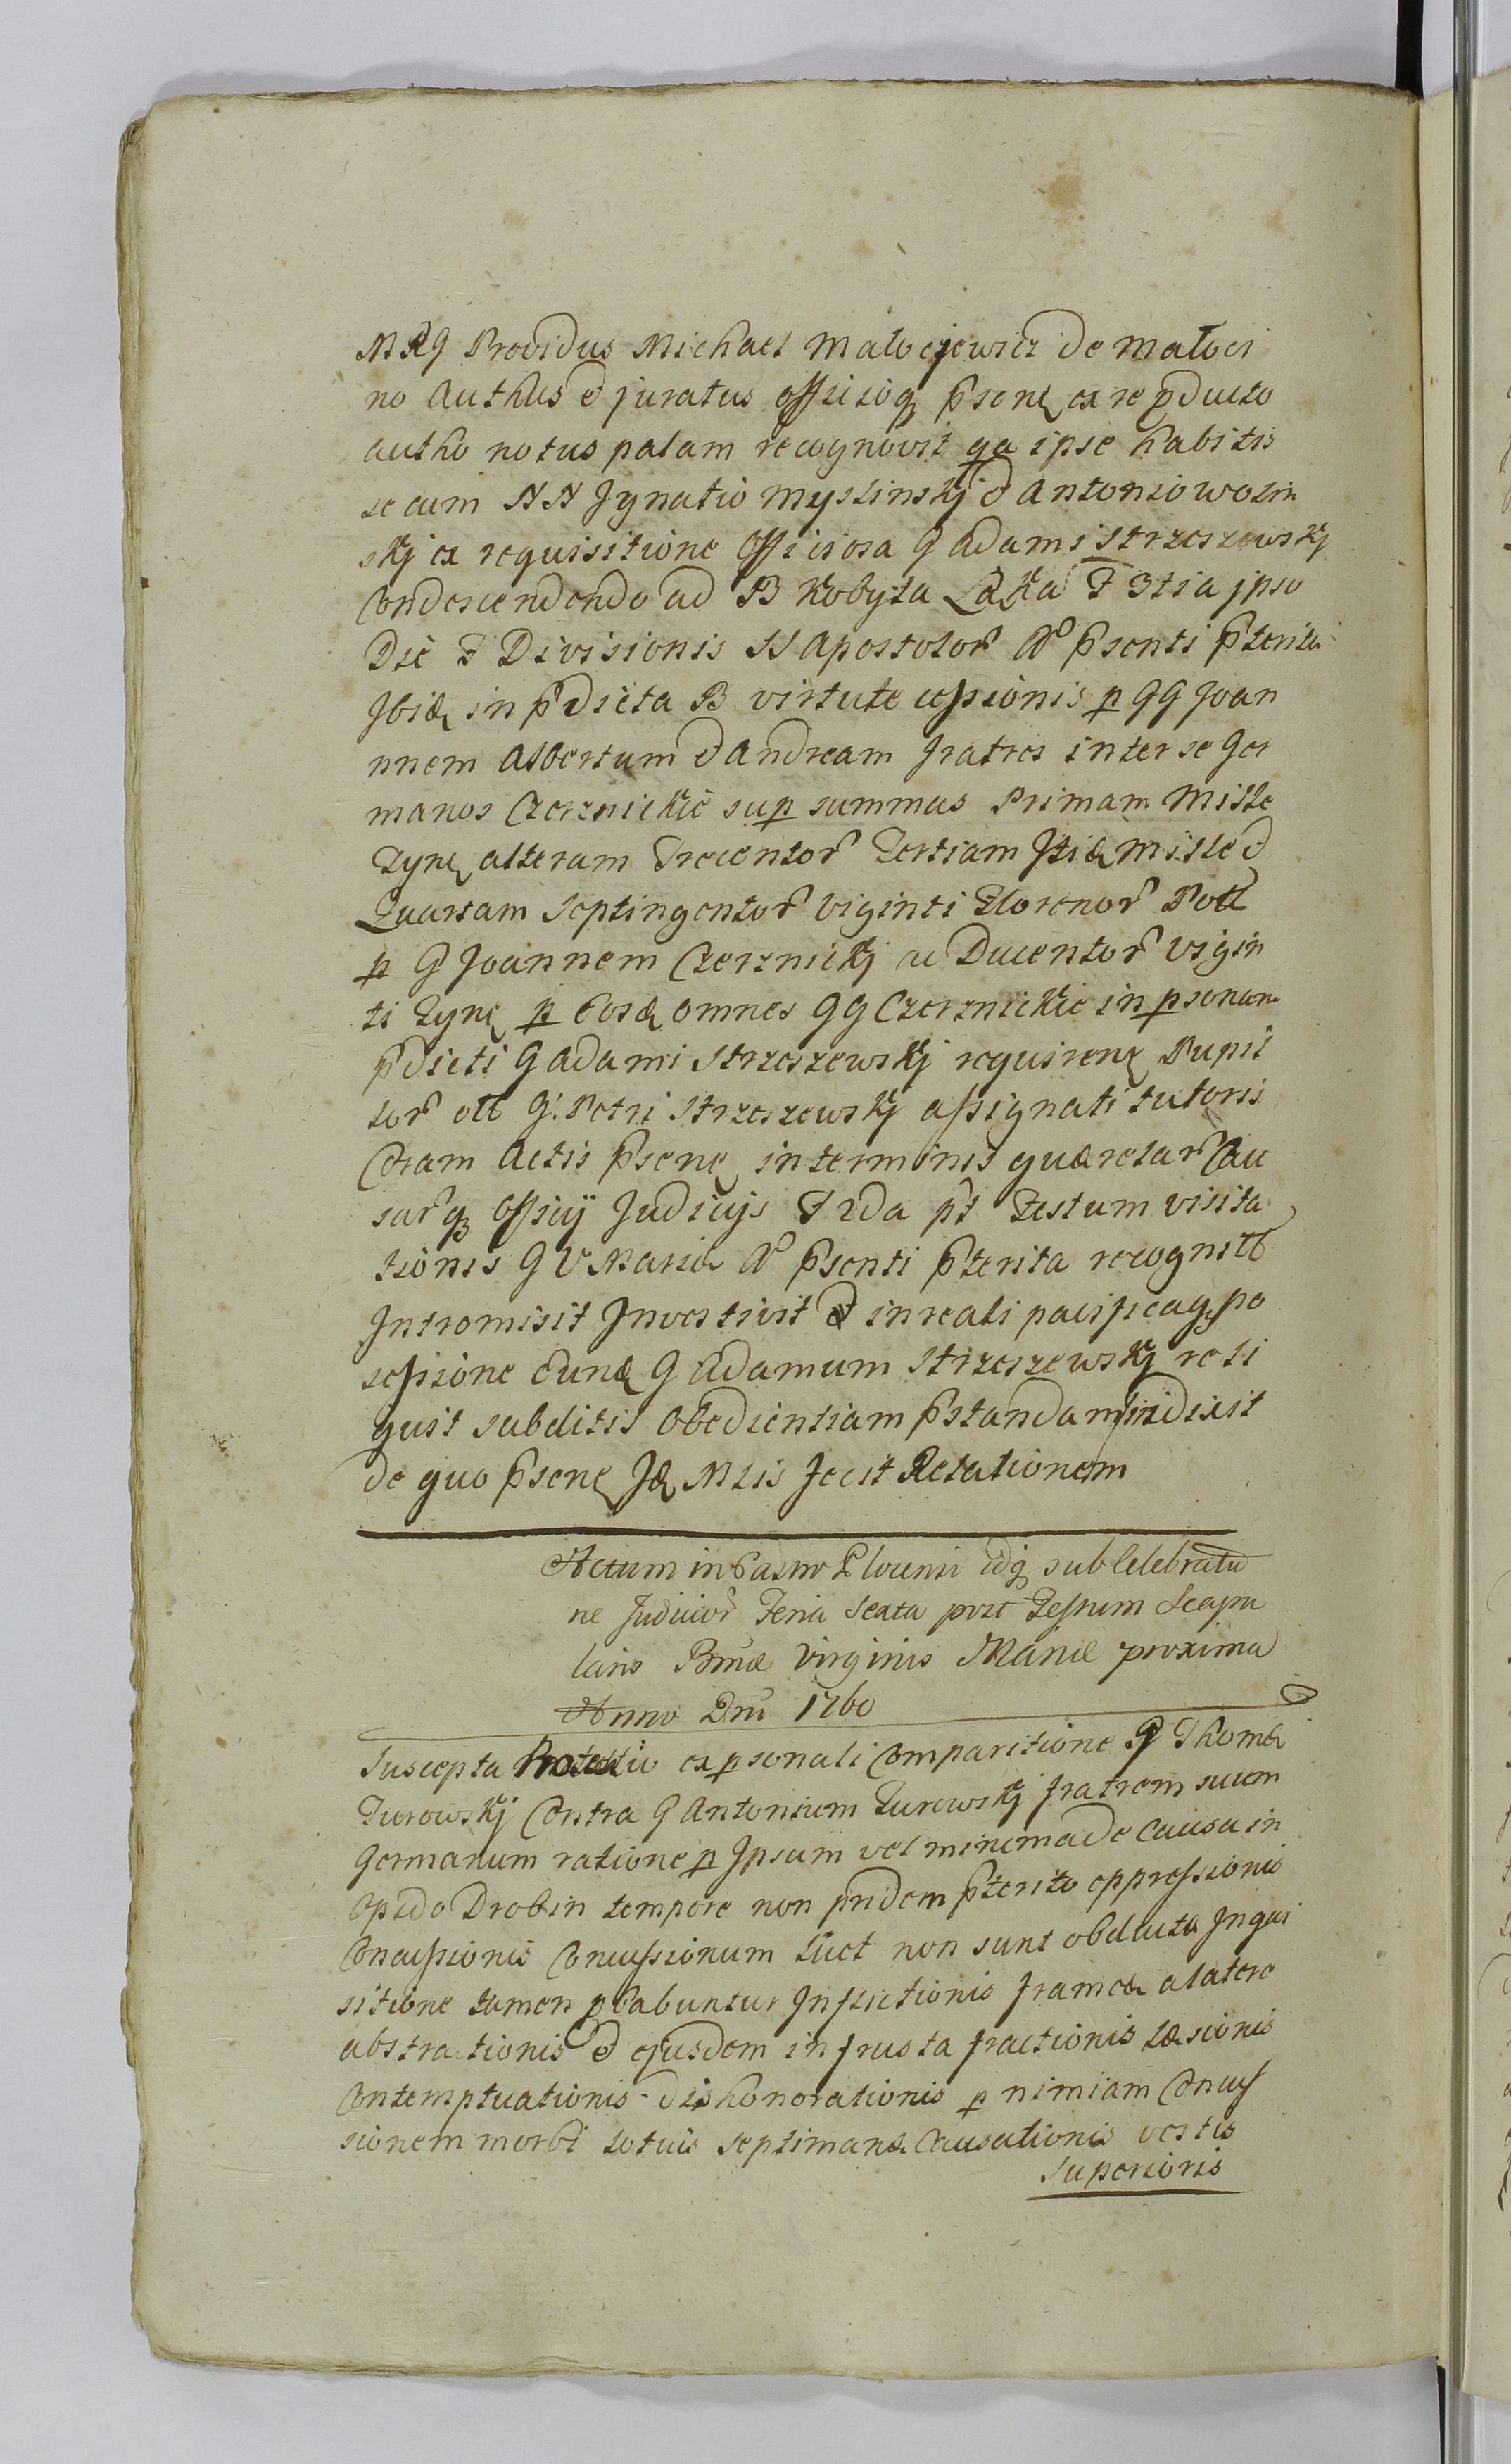 MRG Providus Michael Malocjewicz de Maloci
no Authus et juratus Officioq; psenę ex re pducto
autho notus palam recognovit qa ipse habitis
secum NN Ignatio Myslinskj et Antonio Wolin
skj ex requisitione Officiosa G Adami Strzeszewskj
Condescendendo ad B Kobyla Łąka F 3tia ipso
Die F Divisionis SS Apostolor Ao psenti pterita
Ibidę in pdicta B virtute cessionis p GG Joan
nnem Albertum et Andream fratres inter se Ger
manos Czerznickie sup summas Primam Mille
Tynę alteram Trecentor Tertiam Itidę Mille et
Quartam Septingentor Viginti Florenor Poll
p G Joannem Czerznickj ac Ducentor Vigin
ti Tynę p Eosdę omnes GG Czerznickie in psonam
pdicti G Adami Strzeszewskj requirenę Pupil
lor oll G. Petri Strzeszewskj assignati tutoris
Coram Actis psenę in terminis quærelar Cau
sarq; Officÿ Judicijs F 2da pt Festum Visita
tionis G V Mariæ Ao psenti pterita recognitt
Intromisit Investivit et in reali pacificaq; po
sessione Eundę G Adamum Strzeszewskj reli
quit subditis Obedientiam pstandam indixit
de quo psenę Idę Mlis fecit Relationem
Actum in Castro Plocensi idq; sub Celebratio
ne Judicior Feria Sexta post Festum Scapu
laris Bmæ Virginis Mariæ proxima
Anno Dni 1760
Suscepta Protestatio ex psonali Comparitione G Thomæ
Turowskj Contra G Antonium Turowskj fratrem suum
Germanum ratione p Ipsum vel minima de causa in
Opido Drobin tempore non pridem pterito oppressionis
Concussionis Concussionum licet non sunt obductæ Inqui
sitione tamen pbabuntur Inflictionis frameæ a latere
abstractionis et ejusdem in frusta fractionis Læsionis
Contemptuationis dishonorationis p nimiam Concus
sionem morbi totius septimanæ Causationis vestis
Superioris